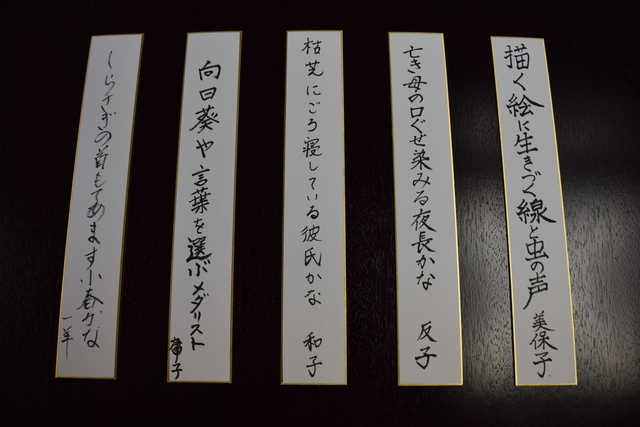 描く絵に生きづく線と虫の声
美保子
亡き母の口ぐせ染みる夜長かな
反子
枯芝にごろ寝している彼氏かな
和子
向日葵や言葉を選ぶメダリスト
しらさぎの首もてあます小春かな